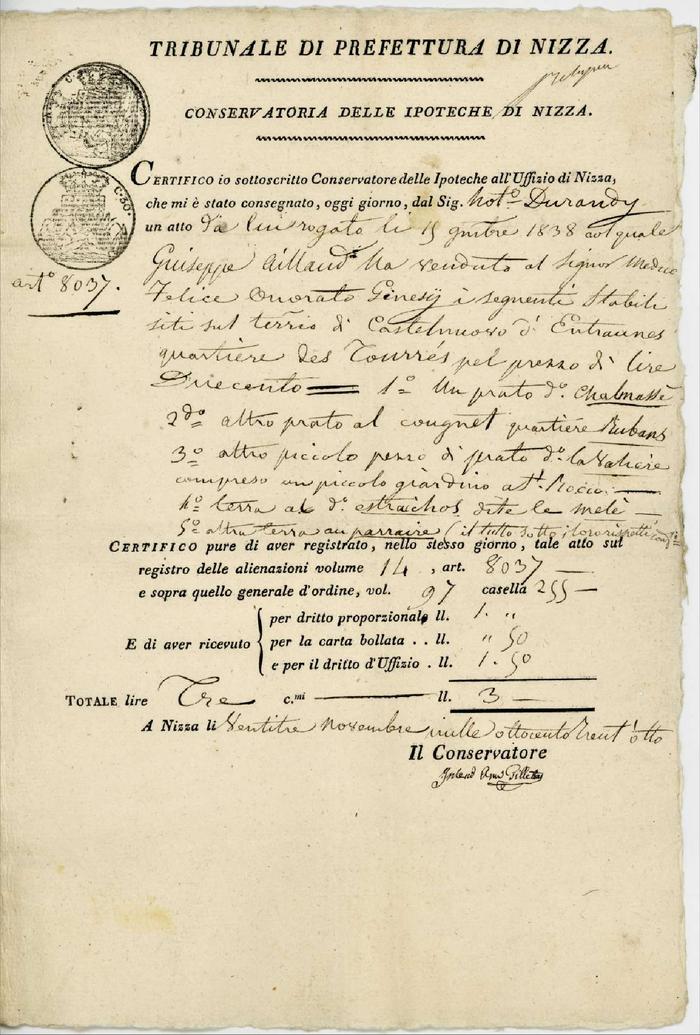 TRIBUNALE DI PREFETTURA DI NIZZA.
CONSERVATORIA DELLE IPOTECHE DI NIZZA.
C. 50.
CERTIFICO io sottoscritto Conservatore delle Ipoteche all'Uffizio di Nizza,
che mi è stato consegnato, oggi giorno, dal Sig. Not.º Durandy
un atto da lui rogato li 15 9mbre 1838 col quale
art.º 8037.
Giuseppe Aillaud ha venduto al Signor Medico
Felice Onorato Ginesy i seguenti Stabili
siti sul terrio di Castelnuovo d'Entraunes
quartiere des Tourrés pel prezzo di lire
Duecento 1º Un prato dº Chalnassè
2do altro prato al cougnet quartiere Rubans
3º altro piccolo pezzo di prato dº la Valiere
compreso un piccolo giardino a St. Rocco.
4º terra al dº estraichos dite le mele
5º altra terra au parraire (il tutto sotto i loro rispettivi
CERTIFICO pure di aver registrato, nello stesso giorno, tale atto sul
registro delle alienazioni volume 14, art. 8037
e sopra quello generale d'ordine, vol. 97 casella 255
E di aver ricevuto
per dritto proporzionale ll. 1. "
per la carta bollata . . ll. " 50
e per il dritto d'Uffizio . ll. 1. 50
TOTALE lire Tre c.mi ll. 3
A Nizza li Ventitre Novembre mille ottocento trent'otto
Il Conservatore